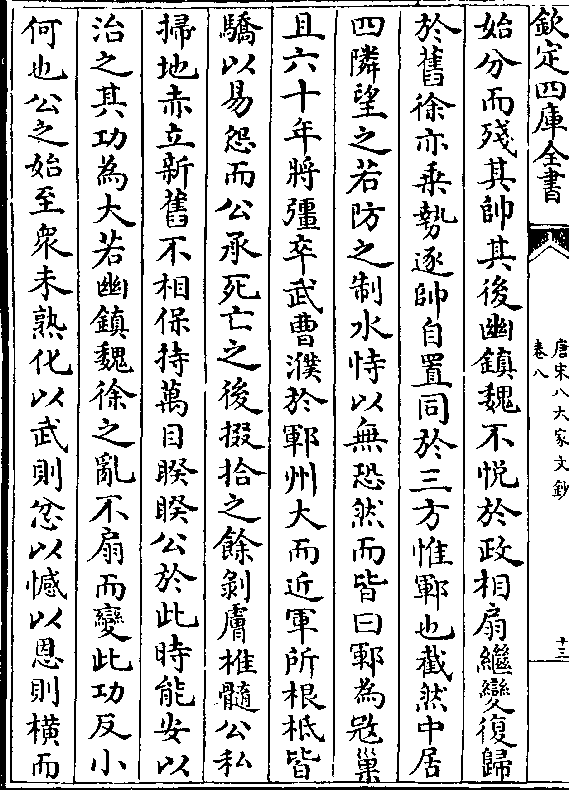 欽定四庫全書
唐宋八大家文鈔
卷八
十三
始分而殘其帥其後幽鎮魏不悦於政相扇繼變復歸
於舊徐亦乗勢逐帥自置同於三方惟鄆也截然中居
四隣望之若防之制水恃以無恐然而皆曰鄆為寇巢
且六十年將彊卒武曹濮於鄆州大而近軍所根柢皆
驕以易怨而公承死亡之後掇拾之餘剥膚椎髓公私
掃地赤立新舊不相保持萬目睽睽公於此時能安以
治之其功為大若幽鎮魏徐之亂不扇而變此功反小
何也公之始至衆未熟化以武則忿以憾以恩則横而